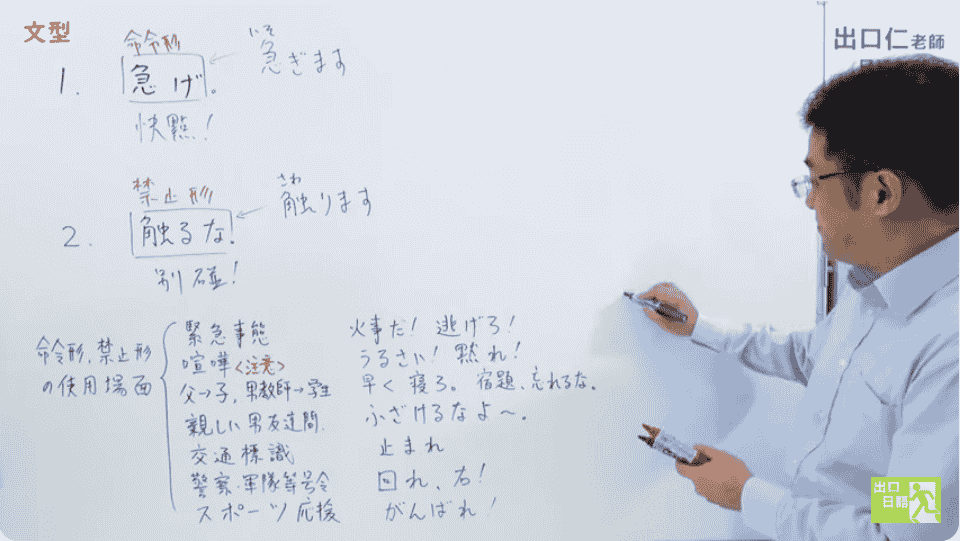 文型
出口仁老師
命令形
いそ
1. 急げ。 急ぎます
快點！
禁止形
さわ
2. 触るな！ 触ります
別碰！
命令形、禁止形
の使用場面
緊急事態 火事だ！逃げろ！
喧嘩<注意> うるさい！黙れ！
父→子，男教師→学生 早く寝ろ。宿題、忘れるな。
親しい男友達間. ふざけるなよ〜。
交通標識 止まれ
警察・軍隊等号令 回れ、右！
スポーツ応援 がんばれ！
出口
日語